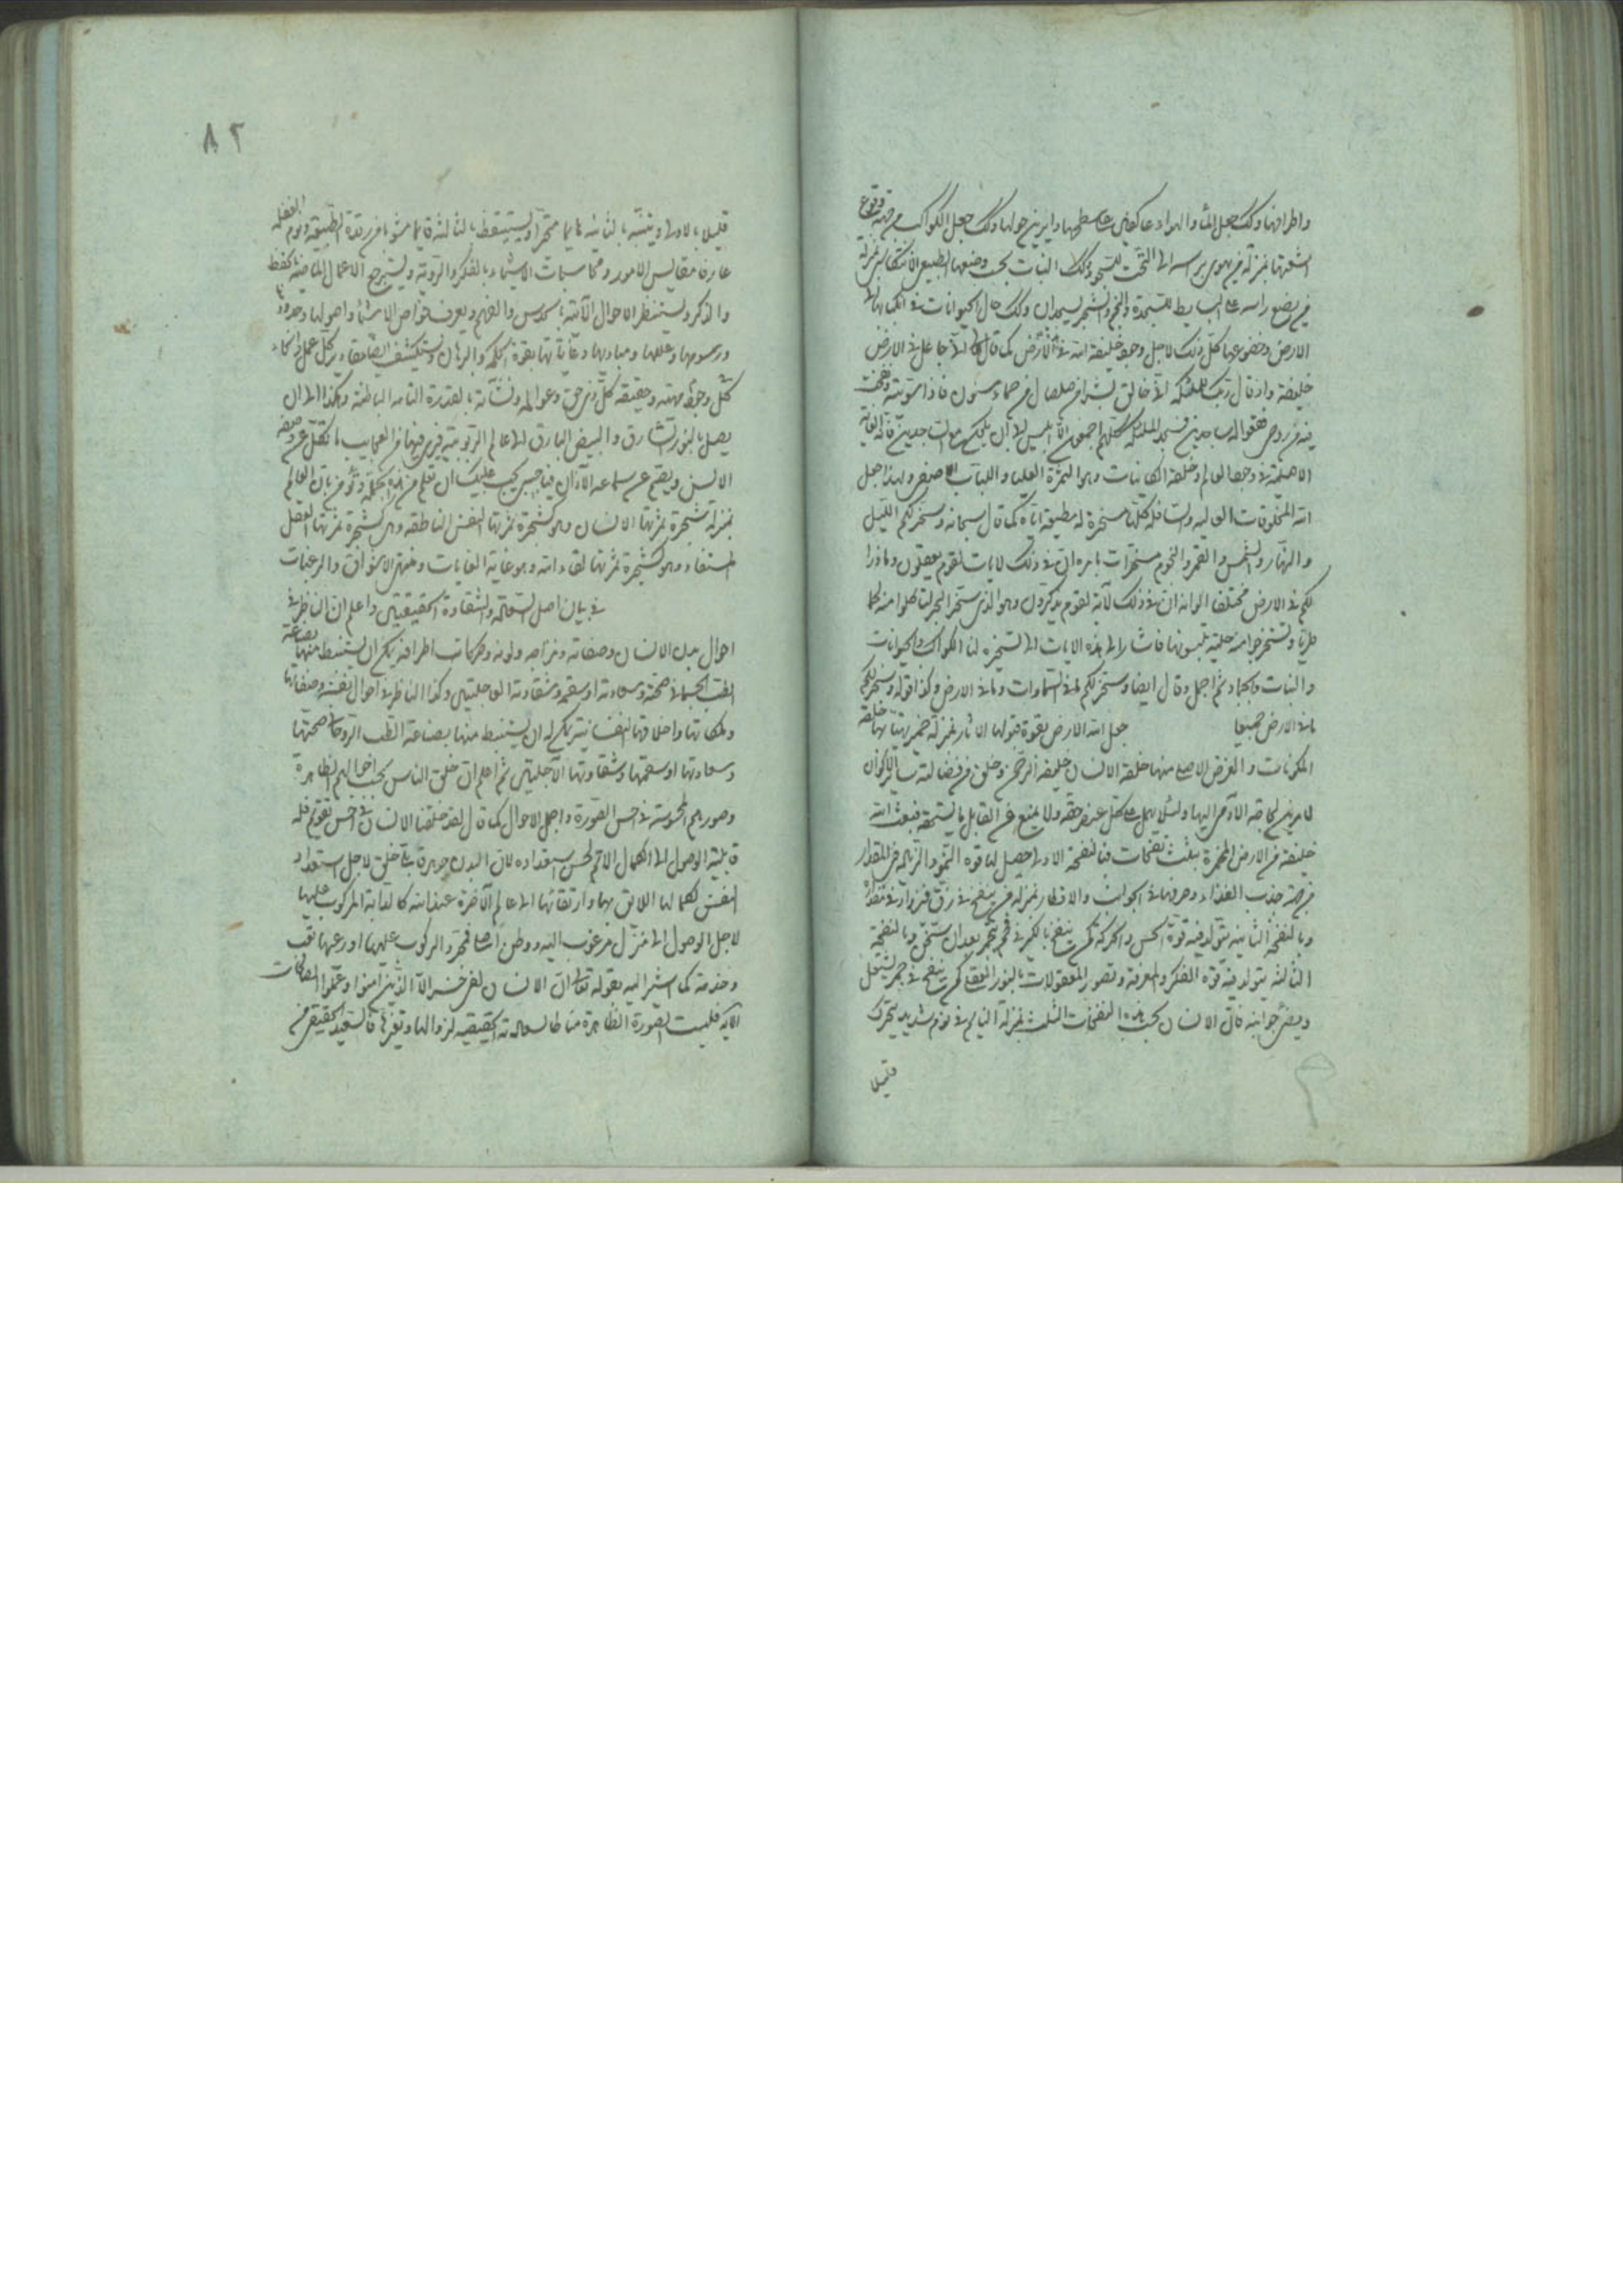 واطرافها وكذلك جعل الماء والهواء عاكفين على سطحها ودايرين حولها وكذلك جعل الكواكب من جهة وقوع
اشعتها بمنزلة من يهوى براسه الى التحت للسجود وكذلك النبات بحسب وضعها الطبيعى الانتكاسى بمنزلة
من يضع راسه على البسايط للسجدة والنجم والشجر يسجدان وكذلك حال الحيوانات فى انكبابها الى
الارض وخضوعها كل ذلك لاجل وجود خليفة الله فى الارض كما قال تعالى انى جاعل فى الارض
خليفة واذ قال ربك للملئكة انى خالق بشرا من صلصال من حماء مسنون فاذا سويته ونفخت
فيه من روحى فقعوا له ساجدين فسجد الملئكة كلهم اجمعون الا ابليس ابى ان يكون مع الساجدين فانه الغاية
الاصلية فى وجود العالم وخلقة الكاينات وهو الثمرة العليا واللباب الاصفى ولهذا جعل
الله المخلوقات العالية والسافلة كلها مسخرة له مطيعة اياه كما قال سبحانه وسخر لكم الليل
والنهار والشمس والقمر والنجوم مسخرات بامره ان فى ذلك لايات لقوم يعقلون وما ذرا
لكم فى الارض مختلفا الوانه ان فى ذلك لآية لقوم يذكرون وهو الذى سخر البحر لتاكلوا منه لحما
طريا وتستخرجوا منه حلية تلبسونها فاشار الى هذه الايات الى تسخيره لنا الكواكب والحيوانات
والنبات والجماد ثم اجمل وقال ايضا وسخر لكم ما فى السماوات وما فى الارض وكذا قوله وسخر لكم
ما فى الارض جميعا جعل الله الارض بقوة قبولها الاثار بمنزلة خمير يتهيا بها خلقة
المكونات والغرض الاصلى منها خلقة الانسان خليفة الرحمن وخلق من فضالته ساير الاكوان
لامرين لحاجة الآدمى اليها ولئلا يهمل كل عنصر حقه ولا يمنع عن القابل ما يستحقه فبعث الله
خليفة من الارض المخمرة بثلث نفخات فبالنفخة الاولى حصل لها قوة النمو والزيادة فى المقدار
من جهة جذب الغذاء وصرفها فى الجوانب والاقطار بمنزلة من ينفخ فى زق فيزداد فى مقداره
وبالنفخة الثانية يتولد فيه قوة الحس والحركة كمن ينفخ بالكير فى فحم يتجمر بعد ان يسخن وبالنفخة
الثالثة يتولد فيه قوة الفكر والمعرفة وتصور المعقولات بالنور العقلى كمن ينفخ فى جمر يشتعل
ويضىء جوانبه فان الانسان بحسب هذه النفخات الثلث بمنزلة النايم فى نوم شديد يتحرك
قليلا
٨٢
قليلا بالاولى ويتنبه بالثانية نايما متحركا ويستيقظ بالثالثة قايما مشوقا من رقدة الطبيعة ونوم الغفلة
عارفا مقاييس الامور ومحاسبات الاشياء بالفكر والروية ويسترجع الاعمال الماضية بالحفظ
والذكر ويستنظر الاحوال الآتية بالحدس والفهم ويعرف خواص الاشياء واصولها وحدودها
ورسومها وعللها ومباديها وغاياتها بقوة الحكمة والبرهان ويستكشف ايضا مقادير كل عمل وانحاء
كل وجود وماهيته وحقيقة كل ذى حق وعوالمه ونشآته بالقدرة التامة الباطنة وهكذا الى ان
يصل بالنور الشارق والبيض البارق الى عالم الربوبية فيرى فيها من العجايب ما تكل عن وصفه
الالسن ويصم عن سماعه الآذان فيا حبيبى يجب عليك ان تعلم من هذه الجملة وتؤمن بان العالم
بمنزلة شجرة ثمرتها الانسان وهو كشجرة ثمرتها النفس الناطقة وهى كشجرة ثمرتها العقل
المستفاد وهو كشجرة ثمرتها لقاء الله وهو غاية الغايات ومنتهى الاشواق والرغبات
فى بيان اصل السعادة والشقاوة الحقيقيتين واعلم ان الناظر فى
احوال بدن الانسان وصفاته ومزاجه ولونه وحركات اطرافه يمكن ان يستنبط منها بصناعة
الطب الجسمانى صحته وسعادته او سقمه وشقاوته العاجليتين وكذا الناظر فى احوال نفسه وصفاتها
وملكاتها واخلاقها النفسانية يمكن له ان يستنبط منها بصناعة الطب الروحانى صحتها
وسعادتها او سقمها وشقاوتها الآجليتين ثم اعلم ان خلق الناس بحسب احوالهم الظاهرة
وصورهم المحسوسة فى احسن الصورة واجمل الاحوال كما قال لقد خلقنا الانسان فى احسن تقويم فله
قابلية الوصول الى الكمال الاتم لحسن استعداده لان البدن جوهر فانى خلق لاجل استعداد
النفس لكمالها اللايق بها وارتقائها الى عالم الآخرة عند الله كالدابة المركوب عليها
لاجل الوصول الى منزل مرغوب اليه ووطن اصلى فحمر والركوب عليها او رعيها تعب
وخدمة كما اشير اليه بقوله تعالى ان الانسان لفى خسر الا الذين امنوا وعملوا الصالحات
الآية فليست الصورة الظاهرة مناطا لسعادته الحقيقية لزوالها وتغيرها فالسعيد الحقيقى من